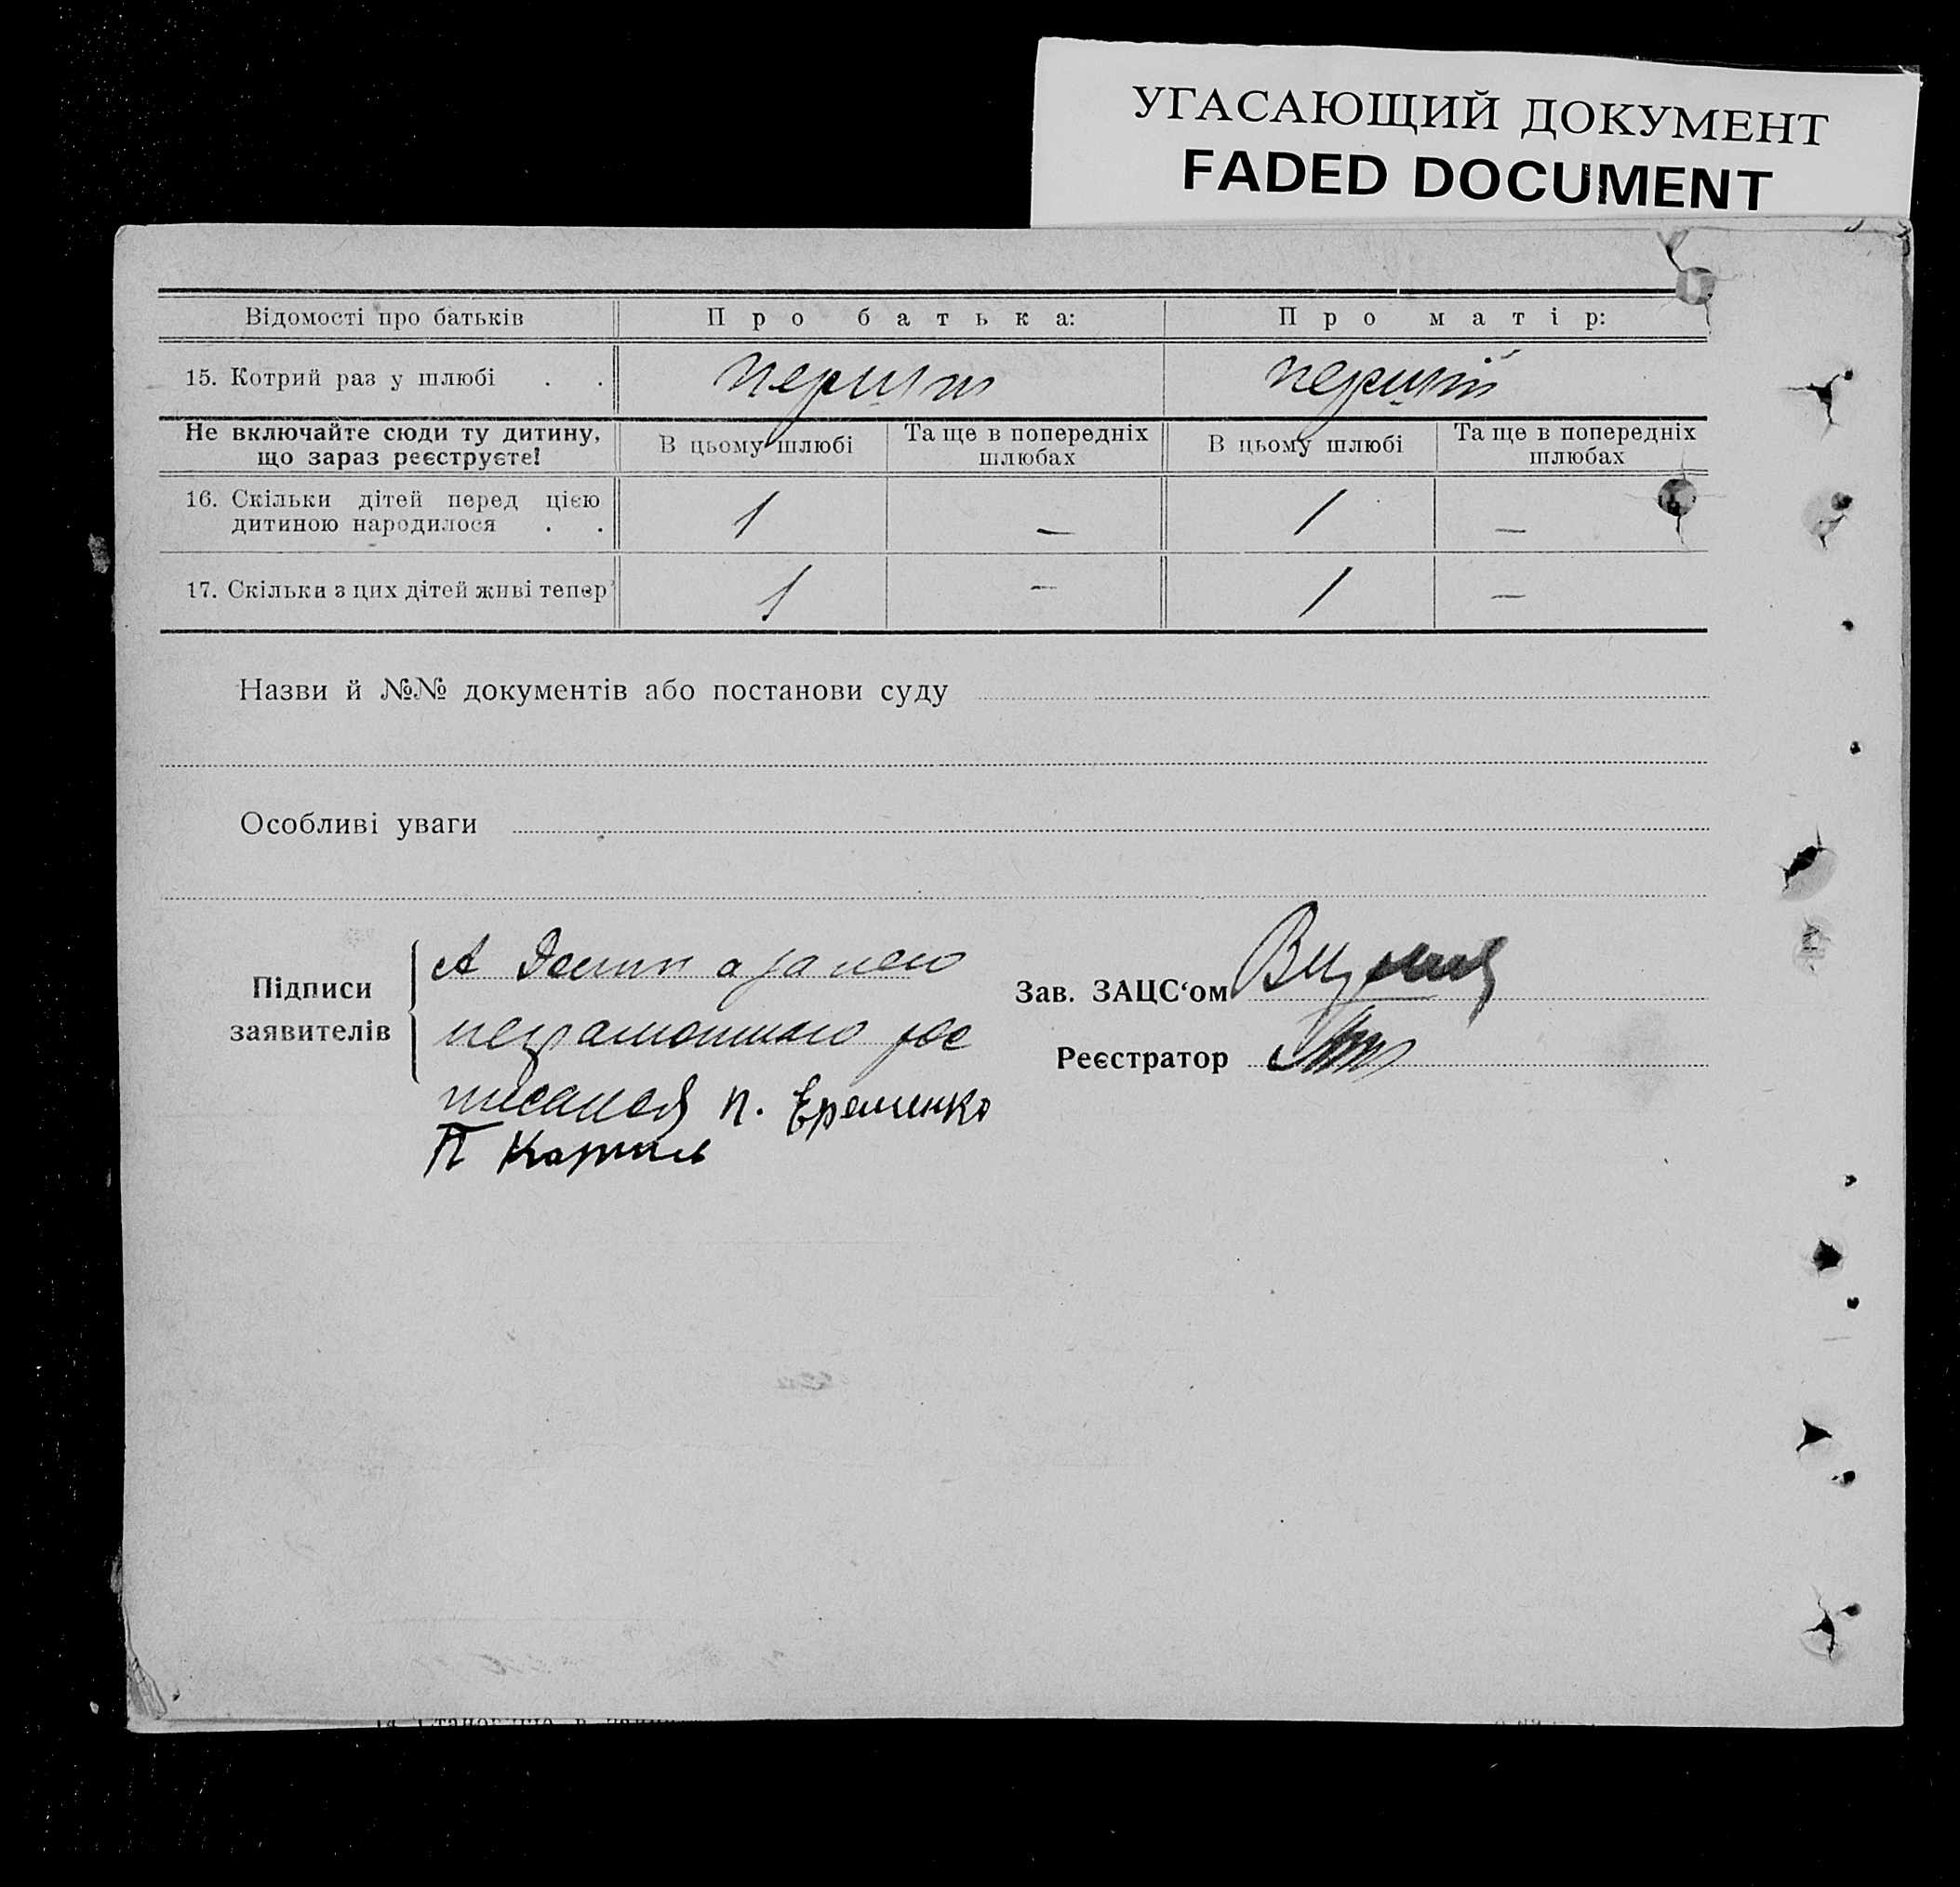 УГАСАЮЩИЙ ДОКУМЕНТ
FADED DOCUMENT
Відомості про батьків Про батька: Про матір:
15. Котрий раз у шлюбі . . перший перший
Не включайте сюди ту дитину, що зараз реєструєте! В цьому шлюбі Та ще в попередніх шлюбах В цьому шлюбі Та ще в попередніх шлюбах
16. Скільки дітей перед цією дитиною народилося . . 1 — 1 —
17. Скільки з цих дітей живі тепер 1 — 1 —
Назви й №№ документів або постанови суду
Особливі уваги
Підписи заявителів
а за него
неграмотного рос
писался П. Ерешенко
П
Зав. ЗАЦС‘ом
Реєстратор